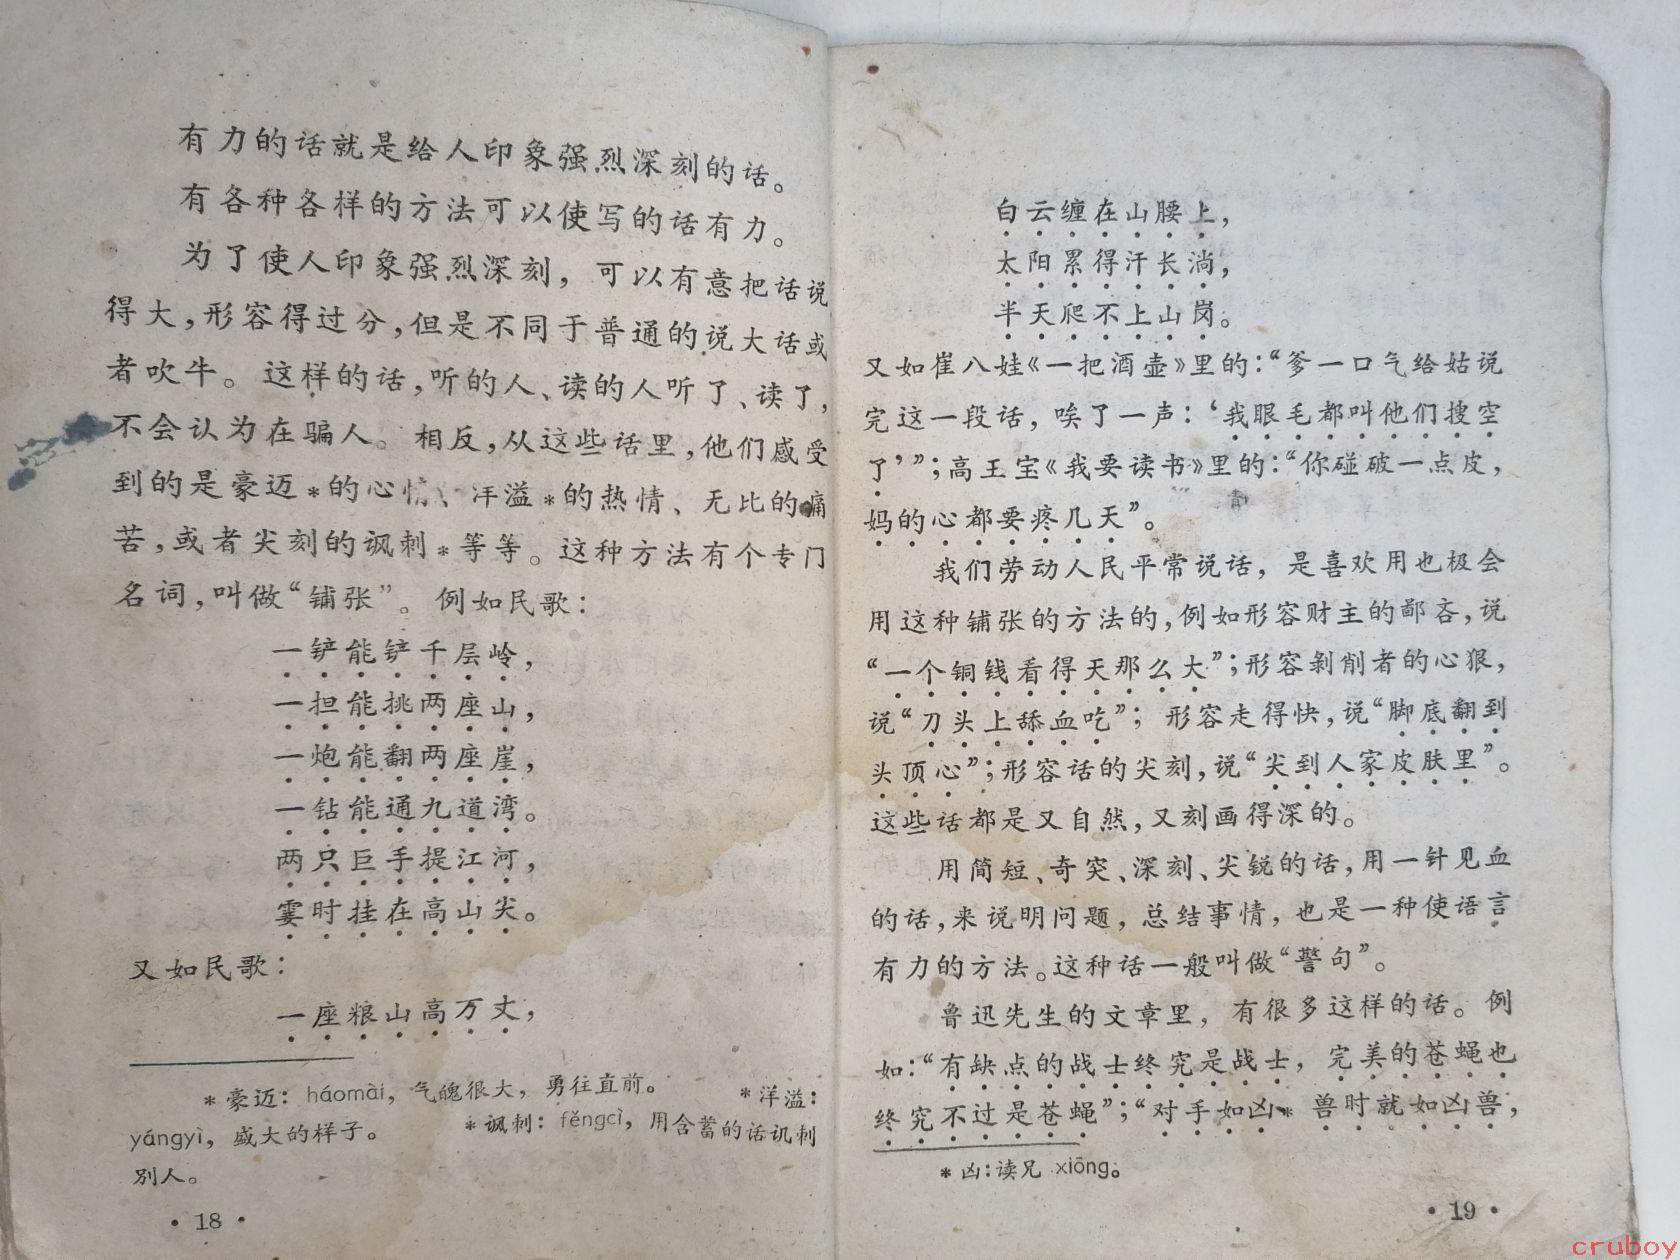 有力的话就是给人印象强烈深刻的话。
有各种各样的方法可以使写的话有力。
为了使人印象强烈深刻，可以有意把话说
得大，形容得过分，但是不同于普通的说大话或
者吹牛。这样的话，听的人、读的人听了、读了，
不会认为在骗人。相反，从这些话里，他们感受
到的是豪迈*的心情、洋溢*的热情、无比的痛
苦，或者尖刻的讽刺*等等。这种方法有个专门
名词，叫做“铺张”。例如民歌：
一铲能铲千层岭，
一担能挑两座山，
一炮能翻两座崖，
一钻能通九道湾。
两只巨手提江河，
霎时挂在高山尖。
又如民歌：
一座粮山高万丈，
*豪迈：háomài，气魄很大，勇往直前。 *洋溢：
yángyì，盛大的样子。 *讽刺：fěngcì，用含蓄的话讥刺
别人。
·18·
白云缠在山腰上，
太阳累得汗长淌，
半天爬不上山岗。
又如崔八娃《一把酒壶》里的：“爹一口气给姑说
完这一段话，唉了一声：‘我眼毛都叫他们搜空
了’”；高玉宝《我要读书》里的：“你碰破一点皮，
妈的心都要疼几天”。
我们劳动人民平常说话，是喜欢用也极会
用这种铺张的方法的，例如形容财主的鄙吝，说
“一个铜钱看得天那么大”；形容剥削者的心狠，
说“刀头上舔血吃”；形容走得快，说“脚底翻到
头顶心”；形容话的尖刻，说“尖到人家皮肤里”。
这些话都是又自然，又刻画得深的。
用简短、奇突、深刻、尖锐的话，用一针见血
的话，来说明问题，总结事情，也是一种使语言
有力的方法。这种话一般叫做“警句”。
鲁迅先生的文章里，有很多这样的话。例
如：“有缺点的战士终究是战士，完美的苍蝇也
终究不过是苍蝇”；“对手如凶*兽时就如凶兽，
*凶：读兄 xiōng。
·19·
cruboy